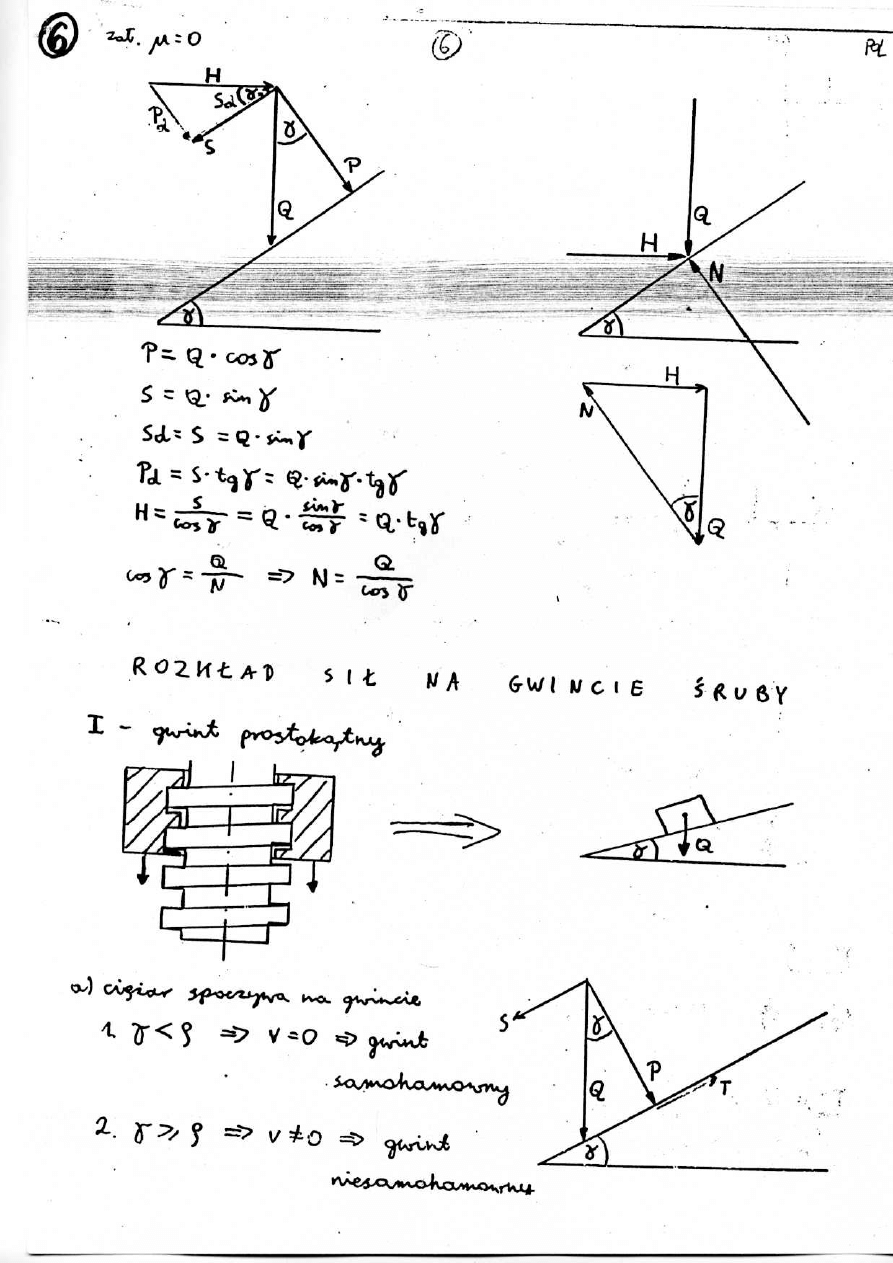 6 zał. μ=0
6
Pd
H
Sd γ
Pd
S
γ
P
Q
γ
Q
H
N
γ
P = Q · cos γ
S = Q · sin γ
Sd = S = Q · sin γ
Pd = S · tg γ = Q · sin γ · tg γ
H = S/cos γ = Q · sin γ/cos γ = Q · tg γ
cos γ = Q/N ⇒ N = Q/cos γ
H
N
γ
Q
ROZKŁAD SIŁ NA GWINCIE ŚRUBY
I - gwint prostokątny
γ
Q
a) ciężar spoczywa na gwincie
1. γ < ρ ⇒ v = 0 ⇒ gwint
samohamowny
2. γ ⩾ ρ ⇒ v ≠ 0 ⇒ gwint
niesamohamowny
S
γ
P
Q
T
γ